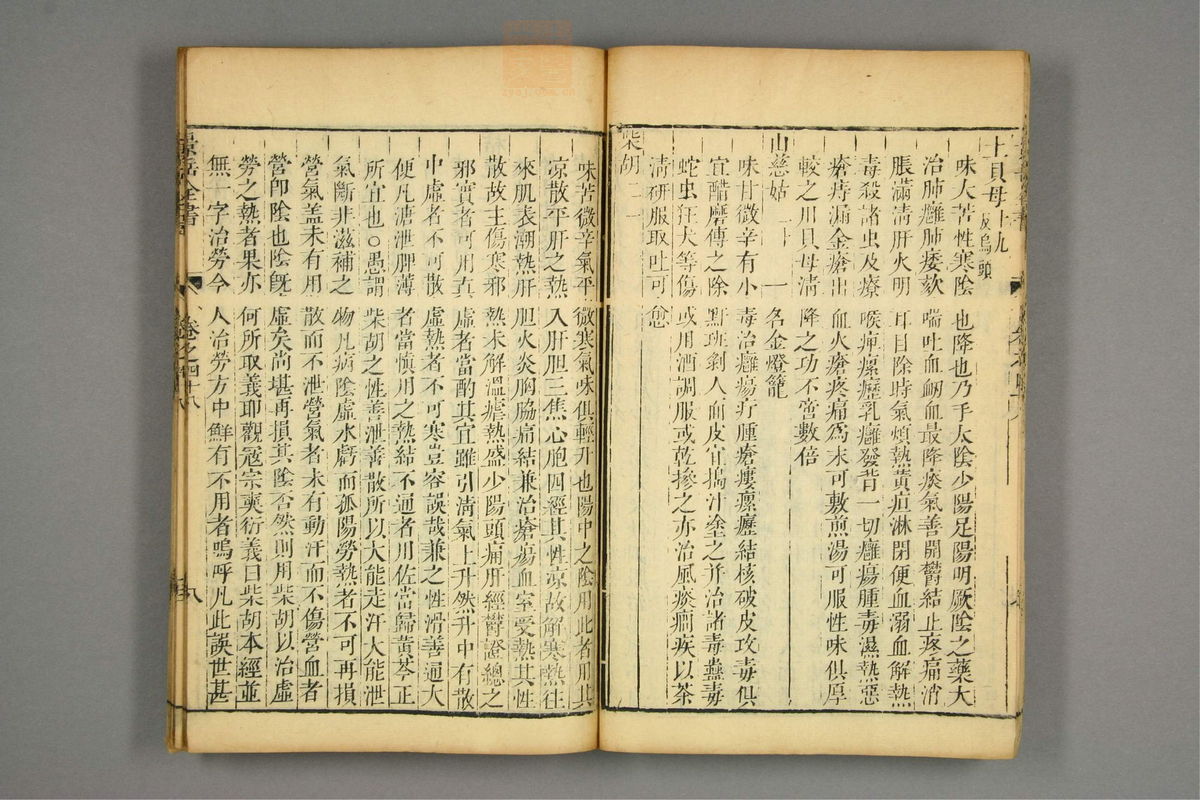 土貝母十九 反烏頭
味大苦性寒陰也降也乃手太陰少陽足陽明厥陰之藥大
治肺癰肺痿欬喘吐血衂血最降痰氣善開鬱結止疼痛消
脹滿清肝火明耳目除時氣煩熱黄疸淋閉便血溺血解熱
毒殺諸虫及療喉痺瘰癧乳癰發背一切癰瘍腫毒濕熱惡
瘡痔漏金瘡出血火瘡疼痛爲末可敷煎湯可服性味俱厚
較之川貝母清降之功不啻數倍
山慈姑二十 一名金燈籠
味甘微辛有小毒治癰瘍疔腫瘡瘻瘰癧結核破皮攻毒俱
宜醋磨傅之除䵟斑剥人面皮宜搗汁塗之并治諸毒蠱毒
蛇虫狂犬等傷或用酒調服或乾摻之亦治風痰癎疾以茶
清研服取吐可愈
柴胡二一
味苦微辛氣平微寒氣味俱輕升也陽中之陰用此者用其
凉散平肝之熱入肝胆三焦心胞四經其性凉故解寒熱往
來肌表潮熱肝胆火炎胸脇痛結兼治瘡瘍血室受熱其性
散故主傷寒邪熱未解溫瘧熱盛少陽頭痛肝經鬱證總之
邪實者可用眞虛者當酌其宜雖引清氣上升然升中有散
中虛者不可散虛熱者不可寒豈容誤哉兼之性滑善通大
便凡溏泄脾薄者當慎用之熱結不通者用佐當歸黄芩正
所宜也○愚謂柴胡之性善泄善散所以大能走汗大能泄
氣斷非滋補之物凡病陰虛水虧而孤陽勞熱者不可再損
營氣盖未有用散而不泄營氣者未有動汗而不傷營血者
營卽陰也陰旣虛矣尚堪再損其陰否然則用柴胡以治虛
勞之熱者果亦何所取義耶觀冦宗奭衍義曰柴胡本經並
無一字治勞今人治勞方中鮮有不用者嗚呼凡此誤世甚
景岳全書
卷之四十八
八